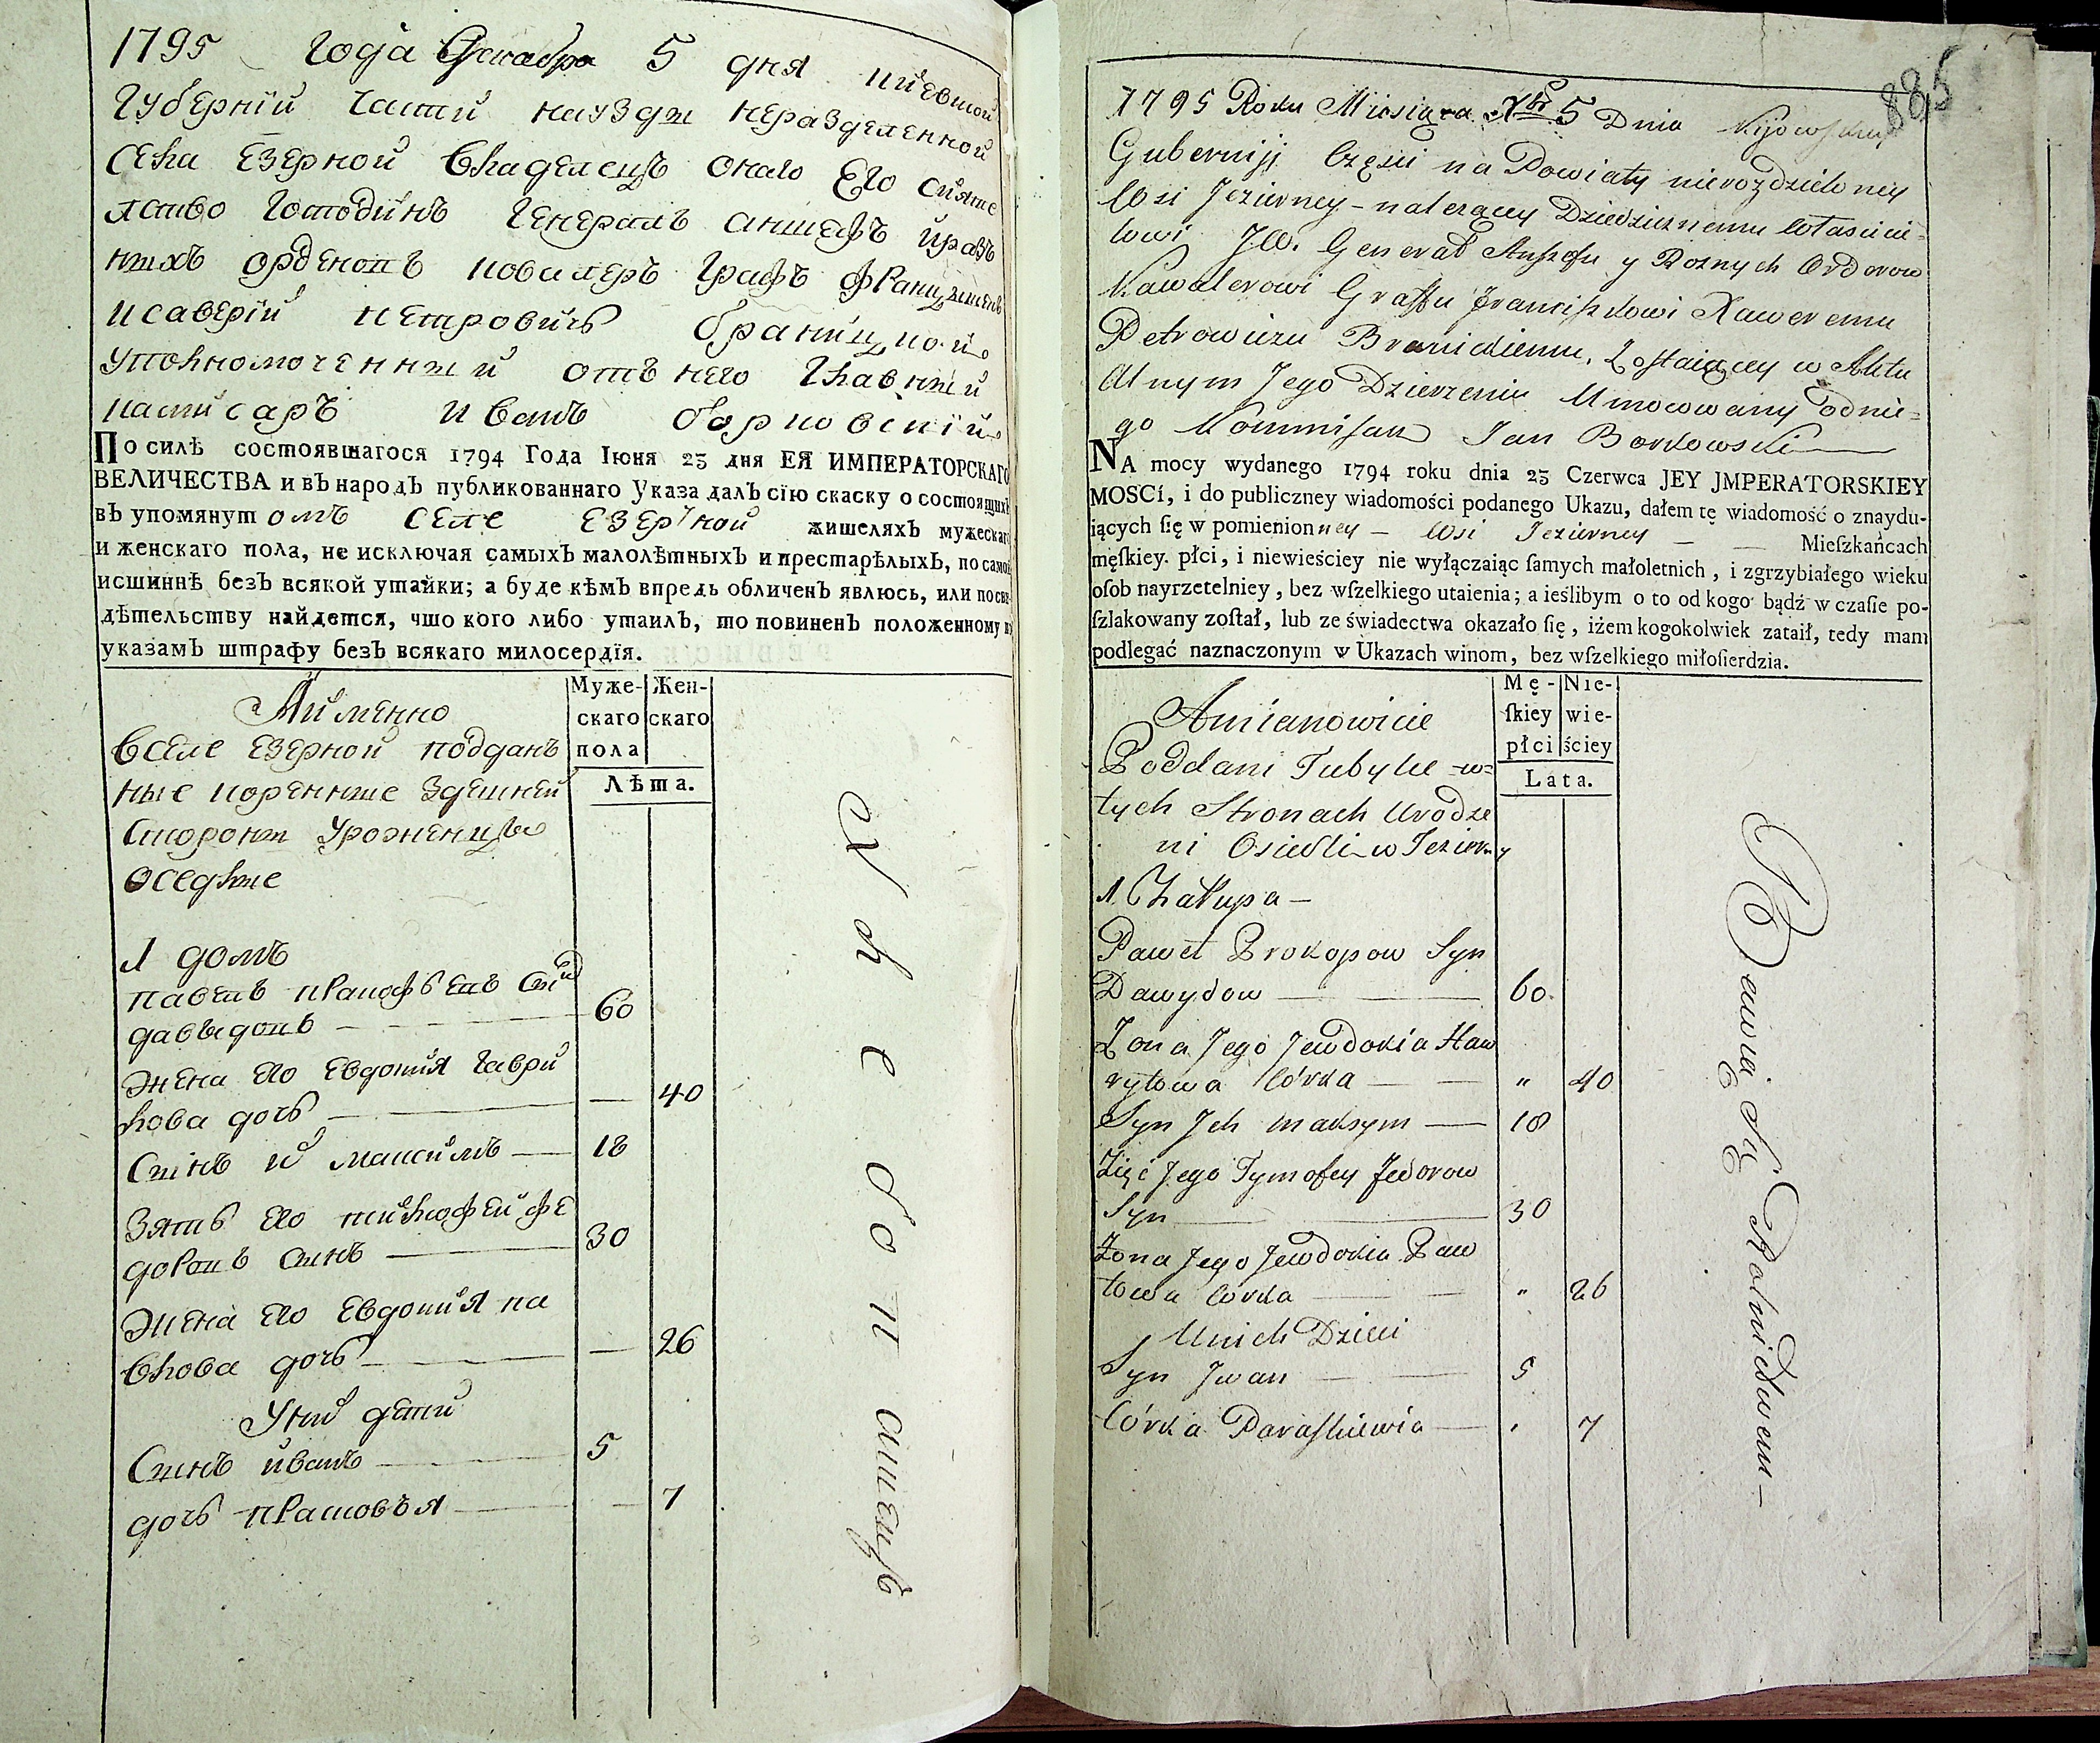 1795 года Декабра 5 дня киевской
губернїи части науэзды неразделенной
села Езерной владелецъ онаго Его сияте
лство господинъ генералъ аншефъ и раз
ныхъ орденовъ ковалеръ графъ Францышекъ
Ксаверїи Петровичъ Браницкой
уполномоченный отъ него главный
камисаръ Иванъ Борковскїй
По силѣ состоявшагося 1794 Года Iюня 23 дня ЕЯ ИМПЕРАТОРСКАГО
ВЕЛИЧЕСТВА и въ народъ публикованнаго Указа далъ сїю скаску о состоящихъ
въ упомянутомъ селе Езерной жителяхъ мужескаго
и женскаго пола, не исключая самыхъ малолѣтныхъ и престарѣлыхъ, по самой
истиннѣ безъ всякой утайки; а буде кѣмъ впредь обличенъ явлюсь, или по сви-
дѣтельству найдется, что кого либо утаилъ, то повиненъ положенному въ
указамъ штрафу безъ всякаго милосердїя.
Муже- Жен-
скаго скаго
пола
Лѣта.
А имѧнно
Вселе Езерной поддан
ные коренные здешней
стороны уроженцы
оседлые
1 домъ
Павелъ Пракофьевъ сынъ
Давыдовъ 60
Жена его Евдокия Гаври
лова дочь 40
Сынъ их Максимъ 18
Зять его Тимофей Фе
доровъ сынъ 30
Жена его Евдокия Па
влова дочь 26
У них дети
Сынъ Иванъ 5
дочь Прасковъя 7
Хлебопашецъ
885
1795 Roku Miesiąca Xbr 5 Dnia Kijowskiey
Gubernij Części na Powiaty nierozdzieloney
Wsi Jezierney - należącey Dziedzicznemu Własicie-
lowi JW. Generał Anszefu y Roznych Orderow
Kawalerowi Graffu Franciszkowi Xaweremu
Petrowiczu Branickiemu, Zostaiącey w Aktu
alnym Jego Dzierzeniu Umocowany od nie-
go Kommisarz Jan Borkowski
NA mocy wydanego 1794 roku dnia 23 Czerwca JEY JMPERATORSKIEY
MOSCí, i do publiczney wiadomości podanego Ukazu, dałem tę wiadomość o znaydu-
iących ſię w pomienionney - Wsi Jezierney - - Mieſzkańcach
męſkiey. płci, i niewieściey nie wyłączaiąc ſamych małoletnich, i zgrzybiałego wieku
oſob nayrzetelniey, bez wſzelkiego utaienia; a ieślibym o to od kogo bądź w czaſie po-
ſzlakowany zoſtał, lub ze świadectwa okazało ſię, iżem kogokolwiek zataił, tedy mam
podlegać naznaczonym w Ukazach winom, bez wſzelkiego miłoſierdzia.
Mę- Nie-
ſkiey wie-
płci ściey
Lata.
Amianowicie
Poddani Tubylce w-
tych Stronach Urodze
ni Osiedli w Jezierney
1. Chałupa -
Paweł Prokopow Syn
Dawydow 60
Zona Jego Jewdokia Haw
ryłowa Córka " 40
Syn Jch Maksym 18
Zięć Jego Tymofey Fedorow
Syn 30
Zona Jego Jewdokia Paw
łowa Corka " 26
U nich Dzieci
Syn Jwan 5
Córka Paraskiewia " 7
Bawią Się Rolnictwem -